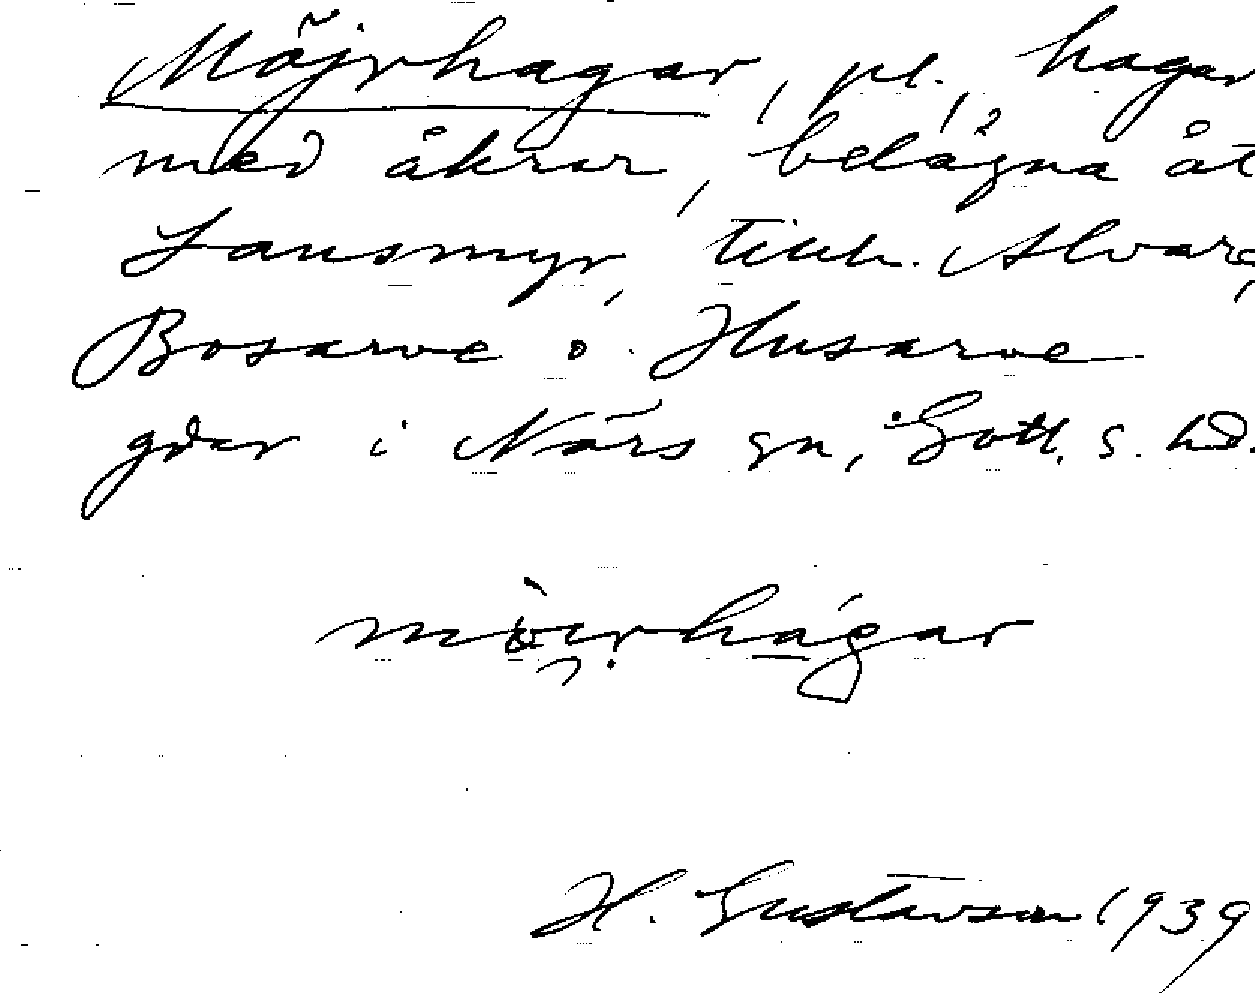 Möjrhagar, pl., hagar
med åkrar, belägna åt
Lausmyr, tillh. Alvare,
Bosarve o. Husarve
gdar i När sn, Gotl. s. hd.
mòirhágar
H. Gustavson 1939